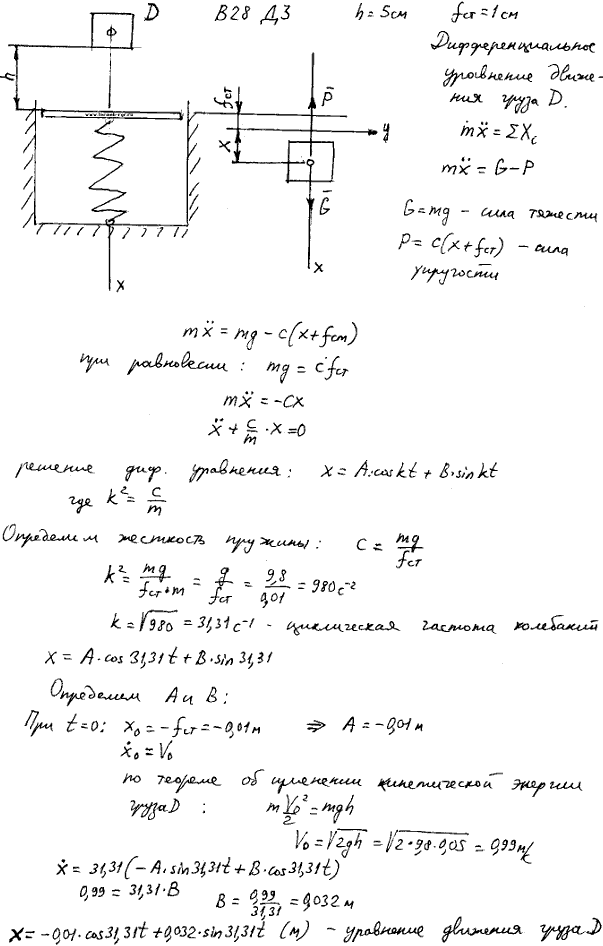 D В28 Д3 h = 5см fст = 1см
h
Дифференциальное
уравнение движе-
ния груза D.
mẍ = ΣXᵢ
mẍ = G - P
G = mg - сила тяжести
P = c(x + fст) - сила
упругости
fст
P̄
y
x
Ḡ
x
x
mẍ = mg - c(x + fст)
при равновесии: mg = c·fст
mẍ = -cx
ẍ + c/m · x = 0
решение диф. уравнения: x = A·cos kt + B·sin kt
где k² = c/m
Определим жесткость пружины: c = mg/fст
k² = mg/(fст·m) = g/fст = 9,8/0,01 = 980 с⁻²
k = √980 = 31,31 с⁻¹ - циклическая частота колебаний
x = A·cos 31,31t + B·sin 31,31
Определим A и B:
При t=0: x₀ = -fст = -0,01 м ⇒ A = -0,01 м
ẋ₀ = V₀
по теореме об изменении кинетической энергии
груза D: mV₀²/2 = mgh
V₀ = √2gh = √2·9,8·0,05 = 0,99 м/с
ẋ = 31,31(-A·sin 31,31t + B·cos 31,31t)
0,99 = 31,31·B B = 0,99/31,31 = 0,032 м
x = -0,01·cos 31,31t + 0,032·sin 31,31t (м) - уравнение движения груза D